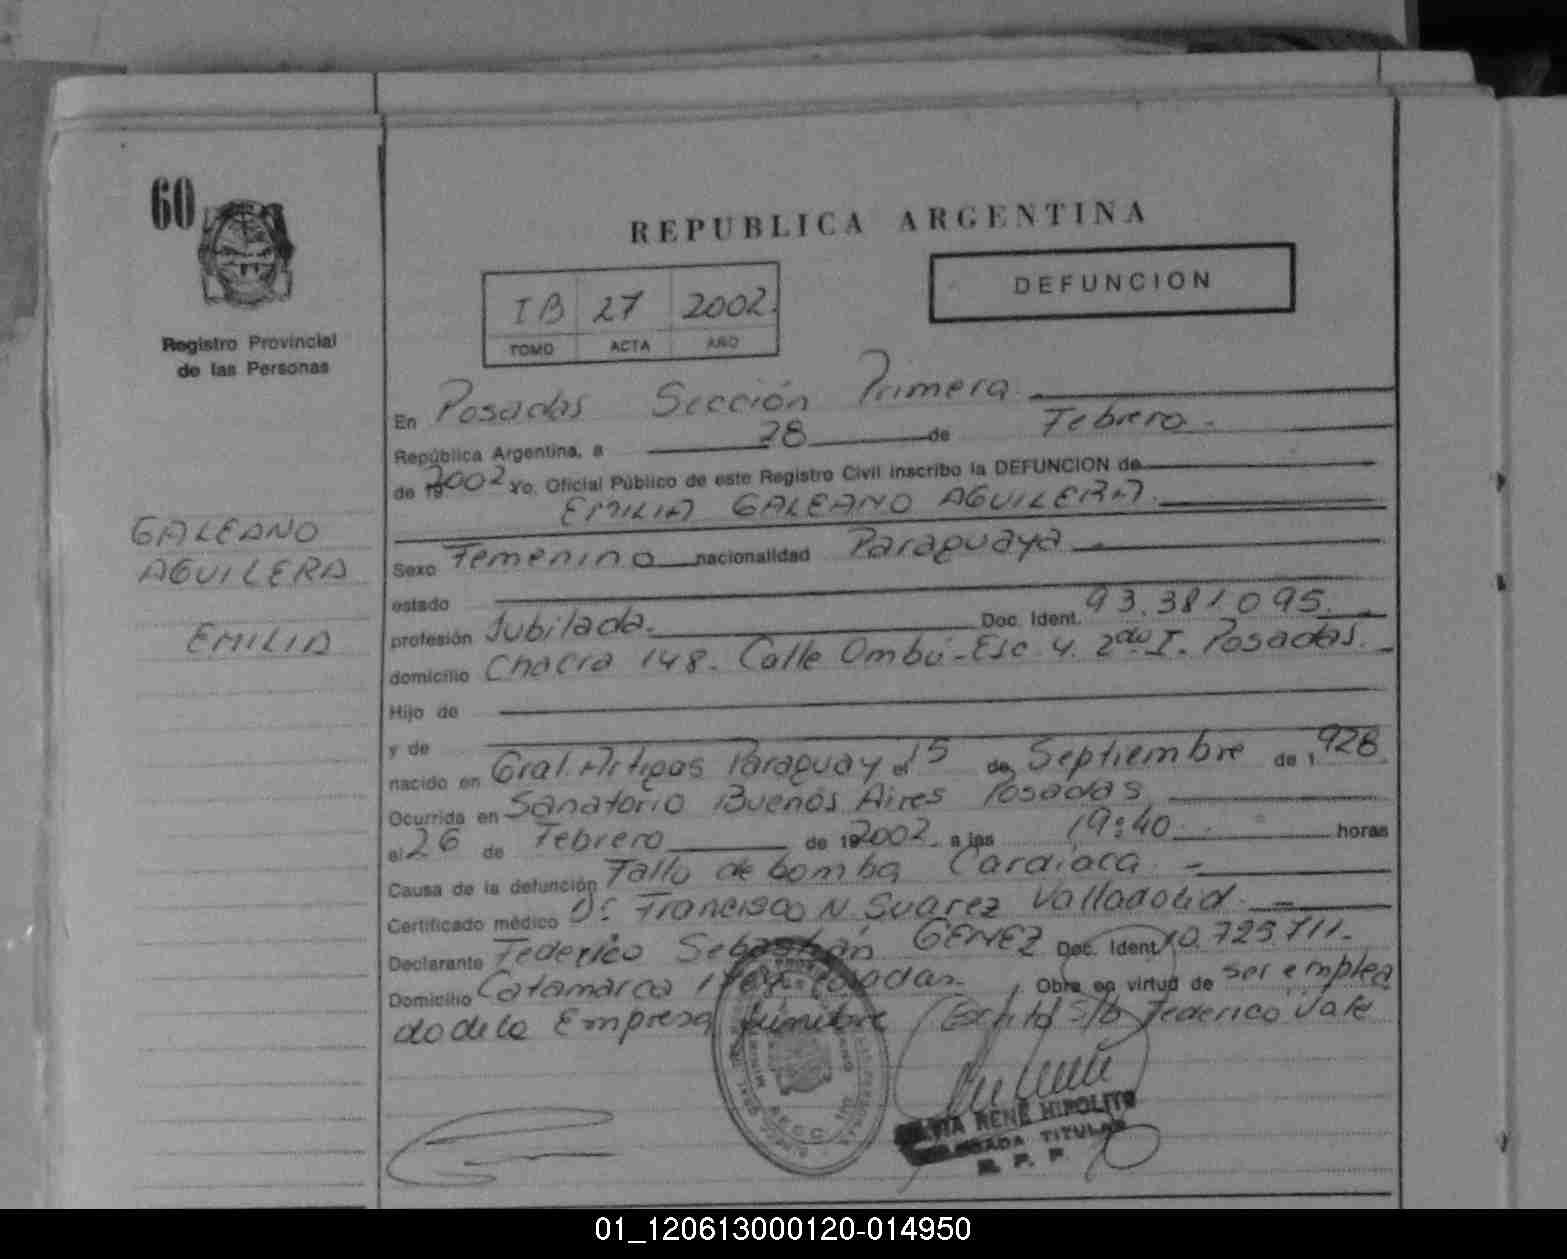 60
REPUBLICA ARGENTINA
DEFUNCION
IB 27 2002.
TOMO ACTA AÑO
Registro Provincial
de las Personas
En Posadas Sección Primera
República Argentina, a 28 de Febrero.
de 19 2002 Yo, Oficial Público de este Registro Civil inscribo la DEFUNCION de
EMILIA GALEANO AGUILERA.
GALEANO
AGUILERA
EMILIA
Sexo Femenino nacionalidad Paraguaya
estado
profesión Jubilada. Doc. Ident. 93.381.095.
domicilio Chacra 148. Calle Ombú - Esc 4. 2do I. Posadas.
Hijo de
y de
nacido en Gral. Artigas Paraguay el 15 de Septiembre de 1.928
Ocurrida en Sanatorio Buenos Aires Posadas
el 26 de Febrero de 19 2002. a las 19:40 horas
Causa de la defunción Fallo de bomba Cardiaca.
Certificado médico Dr. Francisco N. Suarez Valladolid.
Declarante Federico Sebastián GENEZ Doc. Ident. 10.725.711.
Domicilio Catamarca Posadas. Obra en virtud de ser emplea
do de la Empresa fúnebre (Escrito S/b Federico Vale
RENÉ HIPOLITO
TITULAR
R. P. P.
01_120613000120-014950